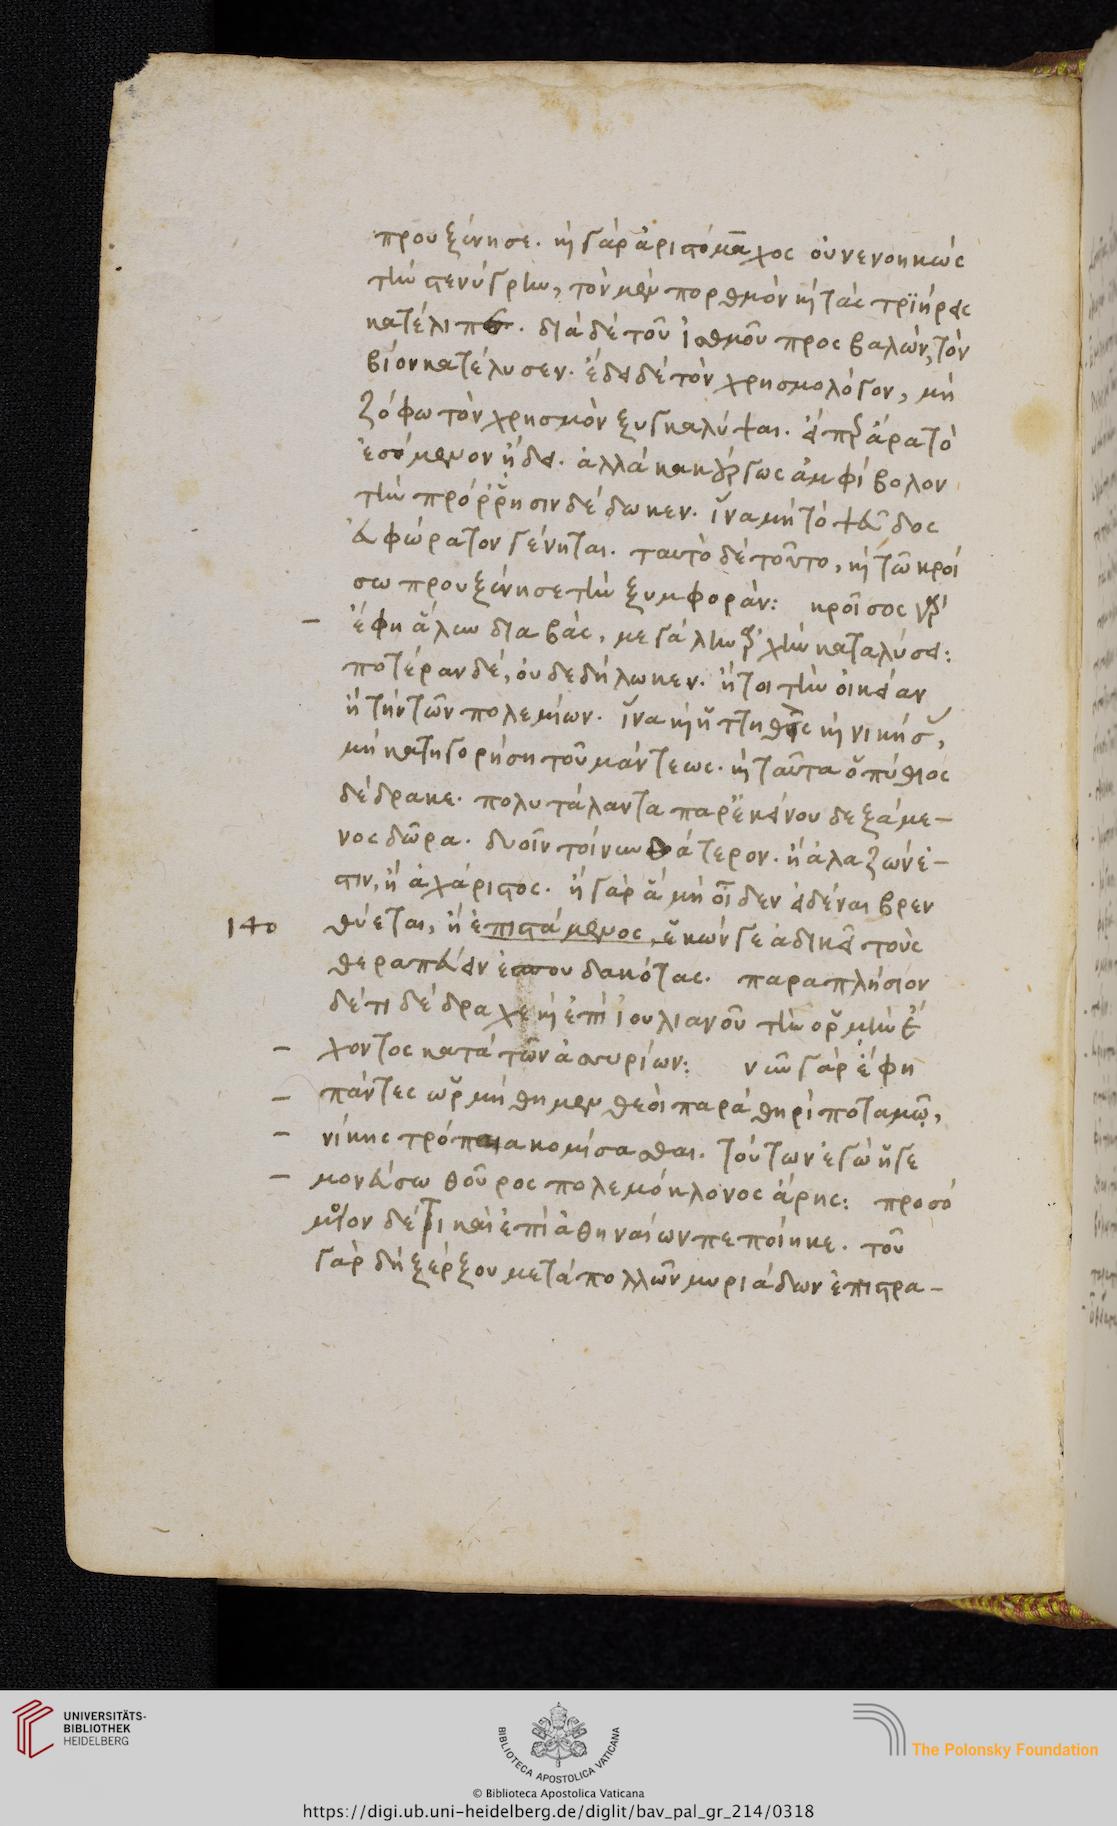 προυξένησε. καὶ γὰρ ἀριστόμαχος οὐ νενοηκὼς
τὴν στενύγρην, τὸν μὲν πορθμὸν καὶ τὰς τριήρεις
κατέλιπε. διὰ δὲ τοῦ ἰσθμοῦ προσβαλὼν, τὸν
βίον κατέλυσεν. ἔδει δὲ τὸν χρησμολόγον, μὴ
ζόφω τὸν χρησμὸν ξυγκαλύψαι. εἴπερ ἄρα τὸ
ἐσόμενον ἤδει. ἀλλὰ κακούργως ἀμφίβολον
τὴν πρόρρησιν δέδωκεν. ἵνα μὴ τὸ ψεῦδος
εὐφώρατον γένηται. ταυτὸ δὲ τοῦτο, καὶ τῶ κροί
σω προυξένησε τὴν ξυμφοράν: κροῖσος γὰρ
– ἔφη ἅλυν διαβὰς, μεγάλην ἀρχὴν καταλύσει:
ποτέραν δὲ, οὐ δεδήλωκεν. ἤτοι τὴν οἰκείαν
ἢ τὴν τῶν πολεμίων. ἵνα καὶ ἡττηθεὶς καὶ νικήσας,
μὴ κατηγορήση τοῦ μάντεως. καὶ ταῦτα ὁ πύθιος
δέδρακε. πολυτάλαντα παρ' ἐκείνου δεξάμε–
νος δῶρα. δυοῖν τοίνυν θάτερον. ἢ ἀλαζών ἐ–
στιν, ἢ ἀχάριστος. ἢ γὰρ ἃ μὴ οἶδεν εἰδέναι βρεν
140 θύεται, ἢ ἐπιστάμενος, ἑκών γε ἀδικεῖ τοὺς
θεραπεύειν ἐσπουδακότας. παραπλήσιον
δέ τι δέδραχε καὶ ἐπὶ ἰουλιανοῦ τὴν ὁρμὴν ἔ
– χοντος κατὰ τῶν ἀσσυρίων: νῦν γὰρ ἔφη
– πάντες ὡρμήθημεν θεοὶ παρὰ θηρὶ ποταμῶ,
– νίκης τρόπαια κομίσασθαι. τούτων ἐγὼ ἡγε
– μονεύσω θοῦρος πολεμόκλονος ἄρης: προσό
μοιον δέ τι καὶ ἐπὶ ἀθηναίων πεποίηκε. τοῦ
γὰρ δὴ ξέρξου μετὰ πολλῶν μυριάδων ἐπιστρα–
UNIVERSITÄTS-
BIBLIOTHEK
HEIDELBERG
BIBLIOTECA APOSTOLICA VATICANA
The Polonsky Foundation
© Biblioteca Apostolica Vaticana
https://digi.ub.uni-heidelberg.de/diglit/bav_pal_gr_214/0318